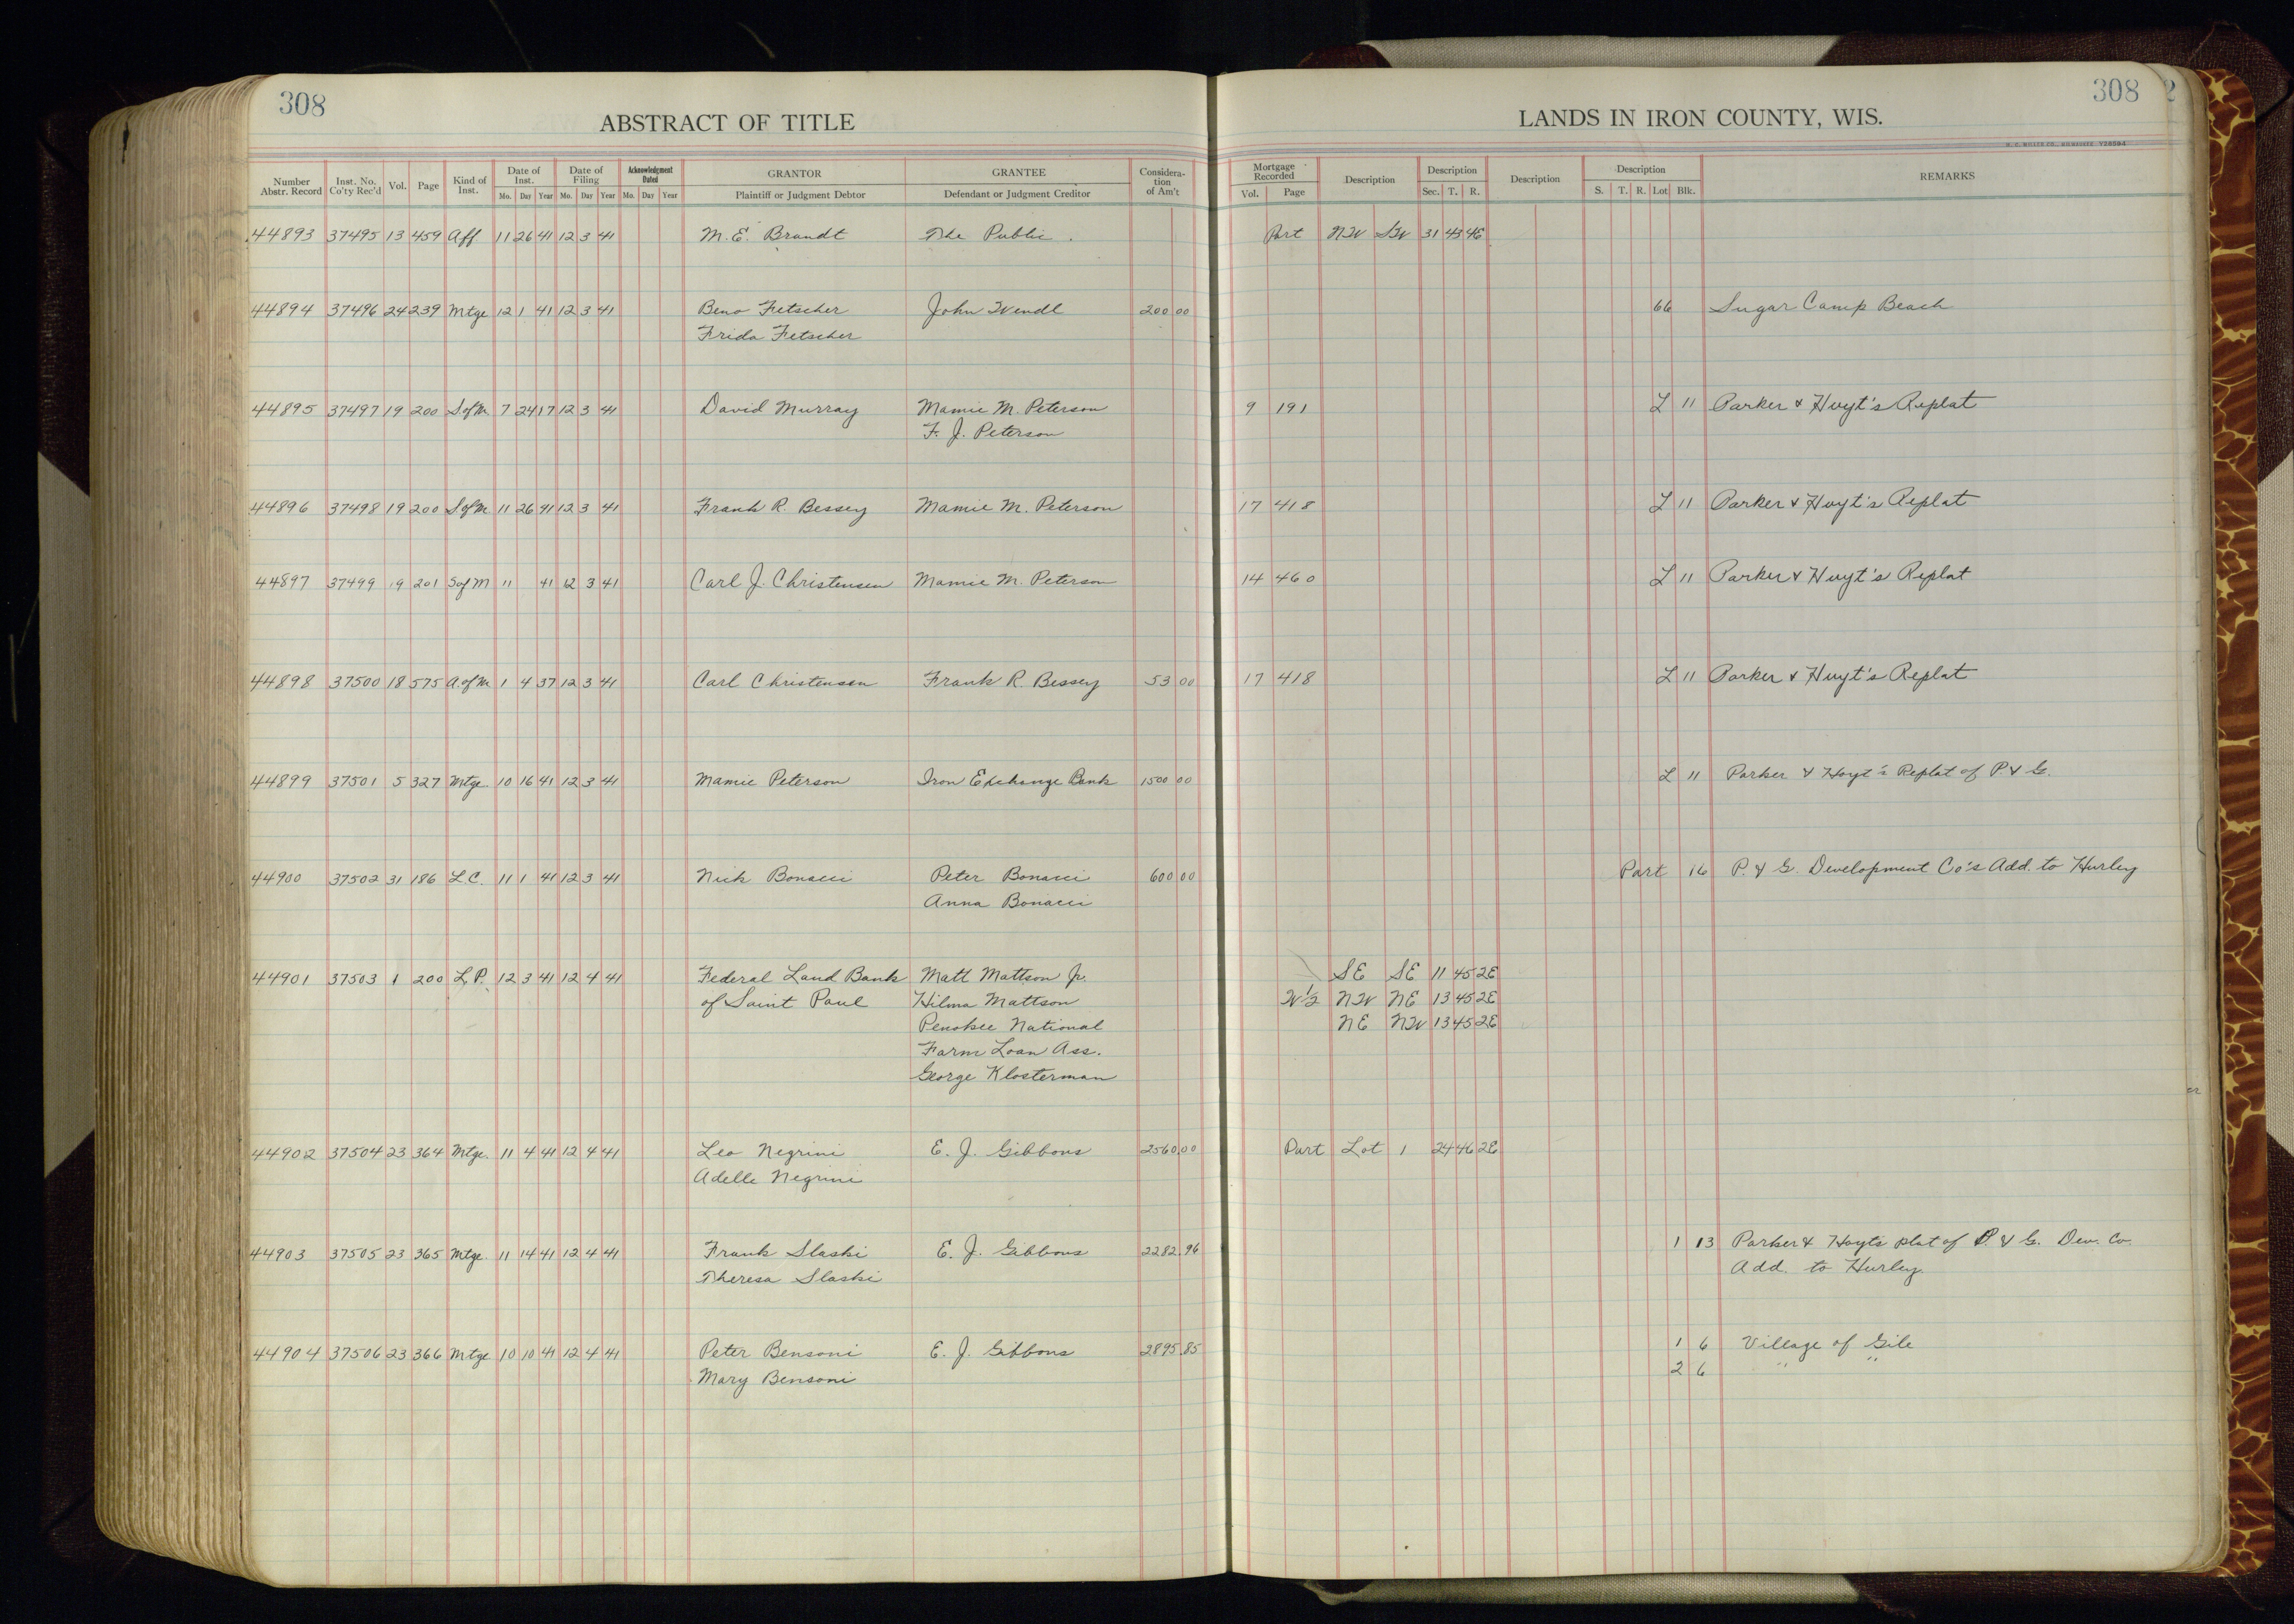 308
ABSTRACT OF TITLE
LANDS IN IRON COUNTY, WIS.
308
2
Number Abstr. Record Inst. No. Co'ty Rec'd Vol. Page Kind of Inst. Date of Inst. Date of Filing Acknowledgment Dated GRANTOR GRANTEE Consideration of Am't Mortgage Recorded Description Description Description Description REMARKS
Mo. Day Year Mo. Day Year Mo. Day Year Plaintiff or Judgment Debtor Defendant or Judgment Creditor Vol. Page Sec. T. R. S. T. R. Lot Blk.
44893 37495 13 459 Aff 11 26 41 12 3 41 M. E. Brandt The Public. Part NW SW 31 43 4E
44894 37496 24 239 Mtge 12 1 41 12 3 41 Beno Fetscher John Wendl 200 00 66 Sugar Camp Beach
Frida Fetscher
44895 37497 19 200 S of M 7 24 17 12 3 41 David Murray Mamie M. Peterson 9 191 L 11 Parker & Hoyt's Replat
F. J. Peterson
44896 37498 19 200 S of M 11 26 41 12 3 41 Frank R. Bessey Mamie M. Peterson 17 418 L 11 Parker & Hoyt's Replat
44897 37499 19 201 S of M 11 41 12 3 41 Carl J. Christensen Mamie M. Peterson 14 460 L 11 Parker & Hoyt's Replat
44898 37500 18 575 A. of M 1 4 37 12 3 41 Carl Christensen Frank R. Bessey 53 00 17 418 L 11 Parker & Hoyt's Replat
44899 37501 5 327 Mtge. 10 16 41 12 3 41 Mamie Peterson Iron Exchange Bank 1500 00 L 11 Parker & Hoyt's Replat of P. & G.
44900 37502 31 186 L C. 11 1 41 12 3 41 Nick Bonacci Peter Bonacci 600 00 Part 16 P. & G. Development Co's Add. to Hurley
Anna Bonacci
44901 37503 1 200 L. P. 12 3 41 12 4 41 Federal Land Bank Matt Mattson Jr. SE SE 11 45 2E
of Saint Paul Hilma Mattson W½ NW NE 13 45 2E
Penokee National NE NW 13 45 2E
Farm Loan Ass.
George Klosterman
44902 37504 23 364 Mtge. 11 4 41 12 4 41 Leo Negrini E. J. Gibbons 2560.00 Part Lot 1 24 46 2E
Adelle Negrini
44903 37505 23 365 Mtge. 11 14 41 12 4 41 Frank Slaski E. J. Gibbons 2282.96 1 13 Parker & Hoyts plat of P. & G. Dev. Co.
Theresa Slaski Add. to Hurley
44904 37506 23 366 Mtge 10 10 41 12 4 41 Peter Bensoni E. J. Gibbons 2895.85 1 6 Village of Gile
Mary Bensoni 2 6 " "